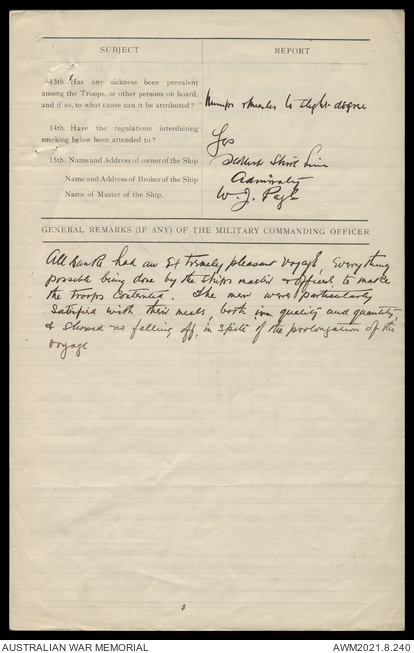 SUBJECT REPORT
13th. Has any sickness been prevalent
among the Troops, or other persons on board,
and if so, to what cause can it be attributed? Mumps & Measles to slight degree
14th. Have the regulations interdicting
smoking below been attended to? Yes
15th. Name and Address of owner of the Ship Line
Name and Address of Broker of the Ship Admiralty
Name of Master of the Ship. W. J. Page
GENERAL REMARKS (IF ANY) OF THE MILITARY COMMANDING OFFICER
All ranks had an Extremely pleasant voyage Everything
possible being done by the ships master & officers to make
the troops contented. The men were particularly
satisfied with their meals, both in quality and quantity,
& showed no falling off, in spite of the prolongation of the
voyage
AUSTRALIAN WAR MEMORIAL AWM2021.8.240